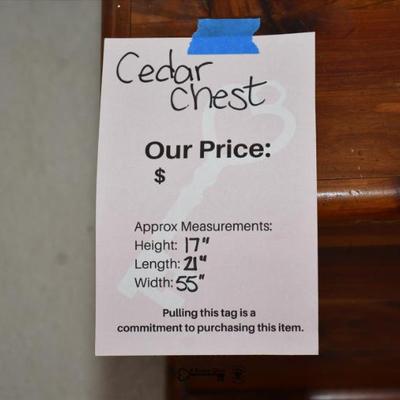 Cedar
Chest
Our Price:
$
Approx Measurements:
Height: 17"
Length: 21"
Width: 55"
Pulling this tag is a
commitment to purchasing this item.